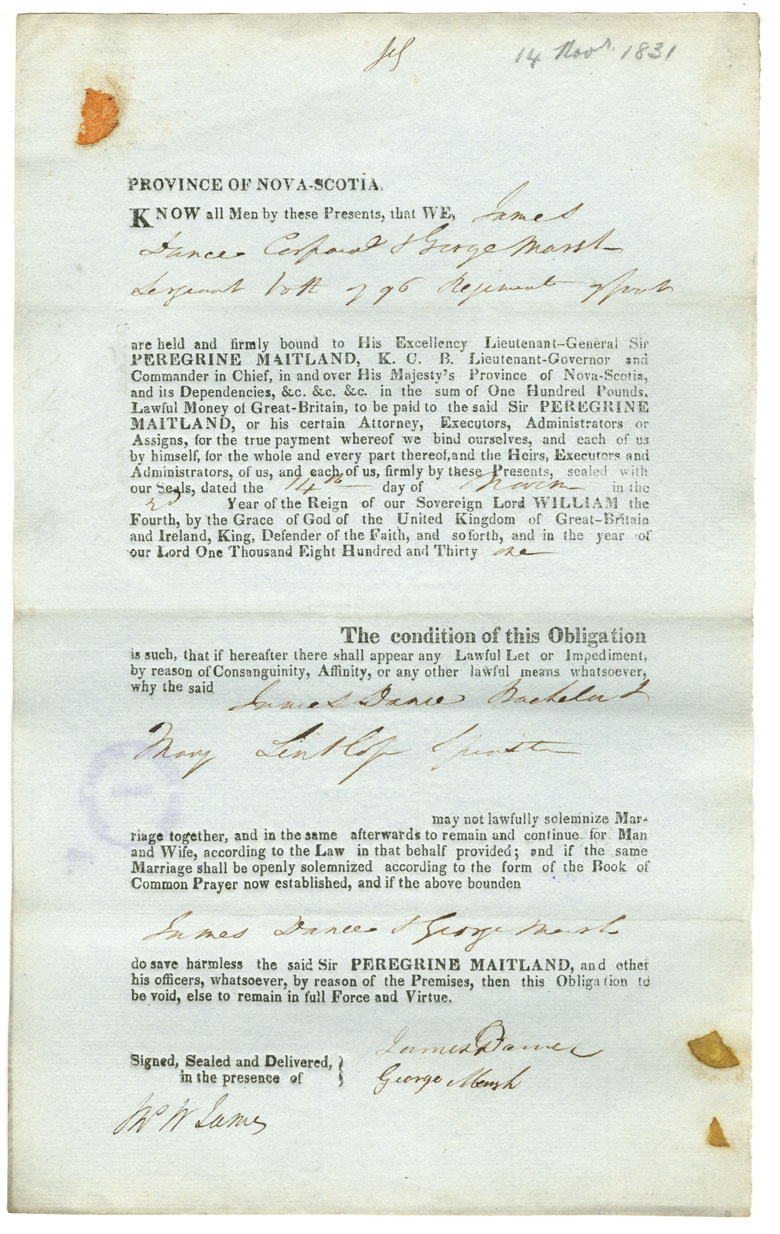 14 Novr. 1831
PROVINCE OF NOVA-SCOTIA.
KNOW all Men by these Presents, that WE, James
Dance Corporal & George Marsh
Sergeant both of 96 Regiment of foot
are held and firmly bound to His Excellency Lieutenant-General Sir
PEREGRINE MAITLAND, K. C. B. Lieutenant-Governor and
Commander in Chief, in and over His Majesty's Province of Nova-Scotia,
and its Dependencies, &c. &c. &c. in the sum of One Hundred Pounds,
Lawful Money of Great-Britain, to be paid to the said Sir PEREGRINE
MAITLAND, or his certain Attorney, Executors, Administrators or
Assigns, for the true payment whereof we bind ourselves, and each of us
by himself, for the whole and every part thereof, and the Heirs, Executors and
Administrators, of us, and each of us, firmly by these Presents, sealed with
our Seals, dated the 14th day of Novem in the
2d Year of the Reign of our Sovereign Lord WILLIAM the
Fourth, by the Grace of God of the United Kingdom of Great-Britain
and Ireland, King, Defender of the Faith, and soforth, and in the year of
our Lord One Thousand Eight Hundred and Thirty one
The condition of this Obligation
is such, that if hereafter there shall appear any Lawful Let or Impediment,
by reason of Consanguinity, Affinity, or any other lawful means whatsoever,
why the said James Dance Bachelor &
Mary Spinster
may not lawfully solemnize Mar-
riage together, and in the same afterwards to remain and continue for Man
and Wife, according to the Law in that behalf provided; and if the same
Marriage shall be openly solemnized according to the form of the Book of
Common Prayer now established, and if the above bounden
James Dance & George Marsh
do save harmless the said Sir PEREGRINE MAITLAND, and other
his officers, whatsoever, by reason of the Premises, then this Obligation to
be void, else to remain in full Force and Virtue.
James Dance
Signed, Sealed and Delivered,
in the presence of
George Marsh
W James